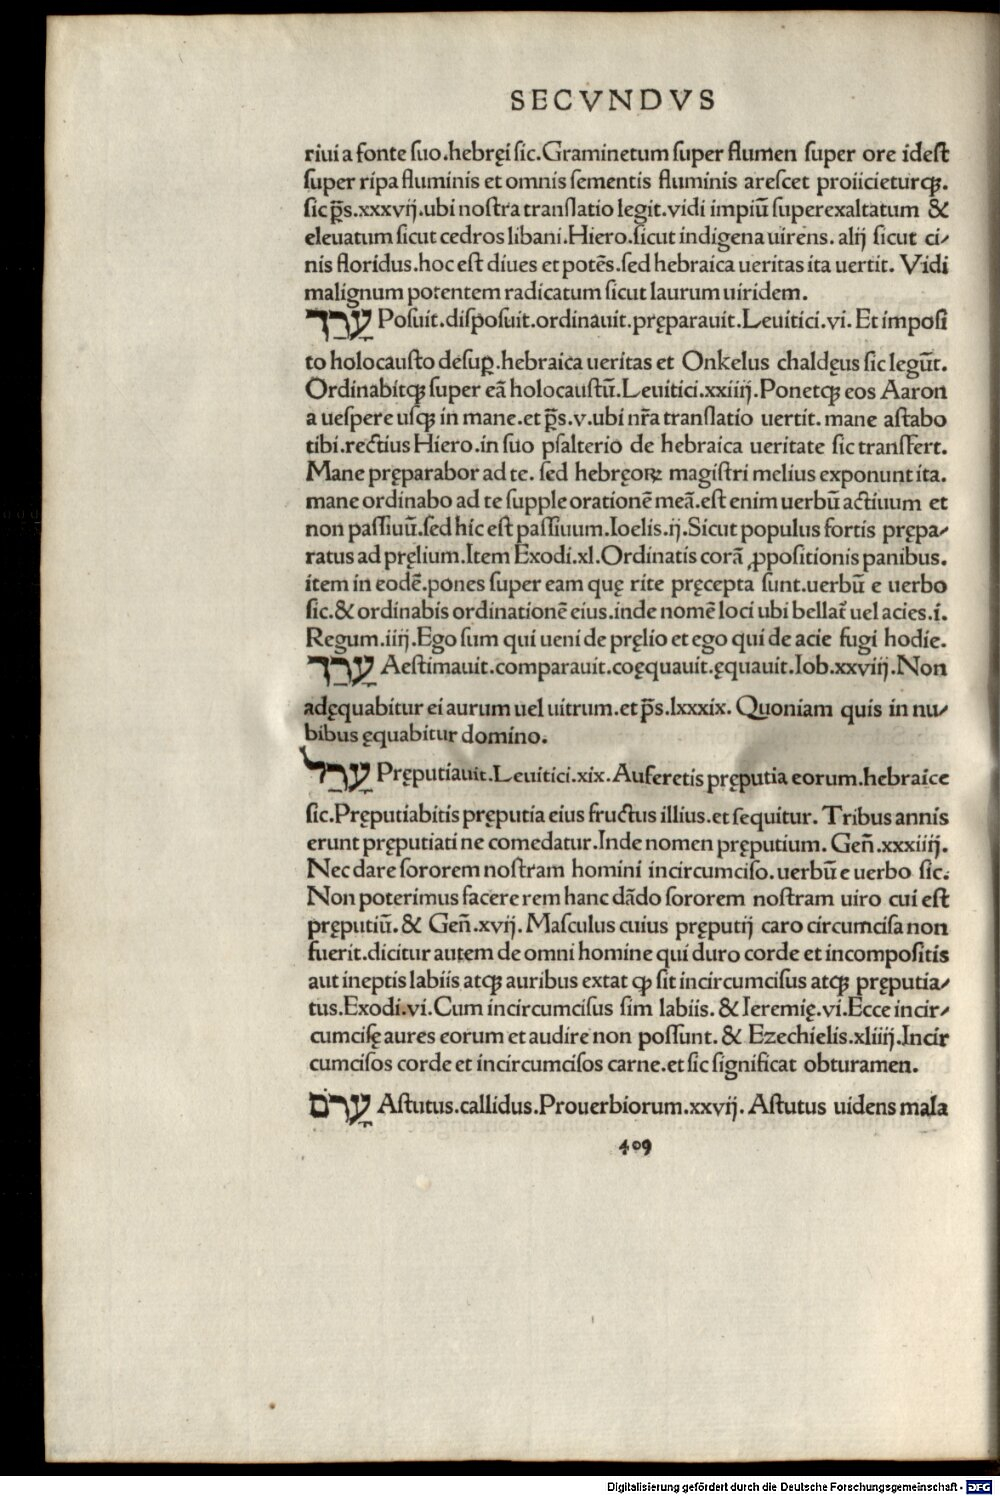 SECVNDVS
riui a fonte suo.hebręi sic.Graminetum super flumen super ore idest
super ripa fluminis et omnis sementis fluminis arescet proiicieturq;.
sic p̄s.xxxvij.ubi nostra translatio legit.vidi impiū superexaltatum &
eleuatum sicut cedros libani.Hiero.sicut indigena uirens. alij sicut ci/
nis floridus.hoc est diues et potēs.sed hebraica ueritas ita uertit. Vidi
malignum potentem radicatum sicut laurum uiridem.
עָרַךְ Posuit.disposuit.ordinauit.pręparauit.Leuitici.vi. Et imposi
to holocausto desuꝑ.hebraica ueritas et Onkelus chaldęus sic legūt.
Ordinabitq; super eā holocaustū.Leuitici.xxiiij.Ponetq; eos Aaron
a uespere usq; in mane.et p̄s.v.ubi nr̄a translatio uertit. mane astabo
tibi.rectius Hiero.in suo psalterio de hebraica ueritate sic transfert.
Mane pręparabor ad te. sed hebręoꝝ magistri melius exponunt ita.
mane ordinabo ad te supple orationē meā.est enim uerbū actiuum et
non passiuū.sed hic est passiuum.Ioelis.ij.Sicut populus fortis prępa/
ratus ad pręlium.Item Exodi.xl.Ordinatis corā ꝓpositionis panibus.
item in eodē.pones super eam quę rite pręcepta sunt.uerbū e uerbo
sic.& ordinabis ordinationē eius.inde nomē loci ubi bellat᷑ uel acies.i.
Regum.iiij.Ego sum qui ueni de pręlio et ego qui de acie fugi hodie.
עָרַךְ Aestimauit.comparauit.coęquauit.ęquauit.Iob.xxviij.Non
adęquabitur ei aurum uel uitrum.et p̄s.lxxxix. Quoniam quis in nu/
bibus ęquabitur domino.
עָרַל Pręputiauit.Leuitici.xix.Auferetis pręputia eorum.hebraice
sic.Pręputiabitis pręputia eius fructus illius.et sequitur. Tribus annis
erunt pręputiati ne comedatur.Inde nomen pręputium. Geñ.xxxiiij.
Nec dare sororem nostram homini incircumciso.uerbū e uerbo sic.
Non poterimus facere rem hanc dādo sororem nostram uiro cui est
pręputiū.& Geñ.xvij.Masculus cuius pręputij caro circumcisa non
fuerit.dicitur autem de omni homine qui duro corde et incompositis
aut ineptis labiis atq; auribus extat ꝙ sit incircumcisus atq; pręputia/
tus.Exodi.vi.Cum incircumcisus sim labiis.& Ieremię.vi.Ecce incir/
cumcisę aures eorum et audire non possunt.& Ezechielis.xliiij.Incir
cumcisos corde et incircumcisos carne.et sic significat obturamen.
עָרֹם Astutus.callidus.Prouerbiorum.xxvij. Astutus uidens mala
409
Digitalisierung gefördert durch die Deutsche Forschungsgemeinschaft - DFG